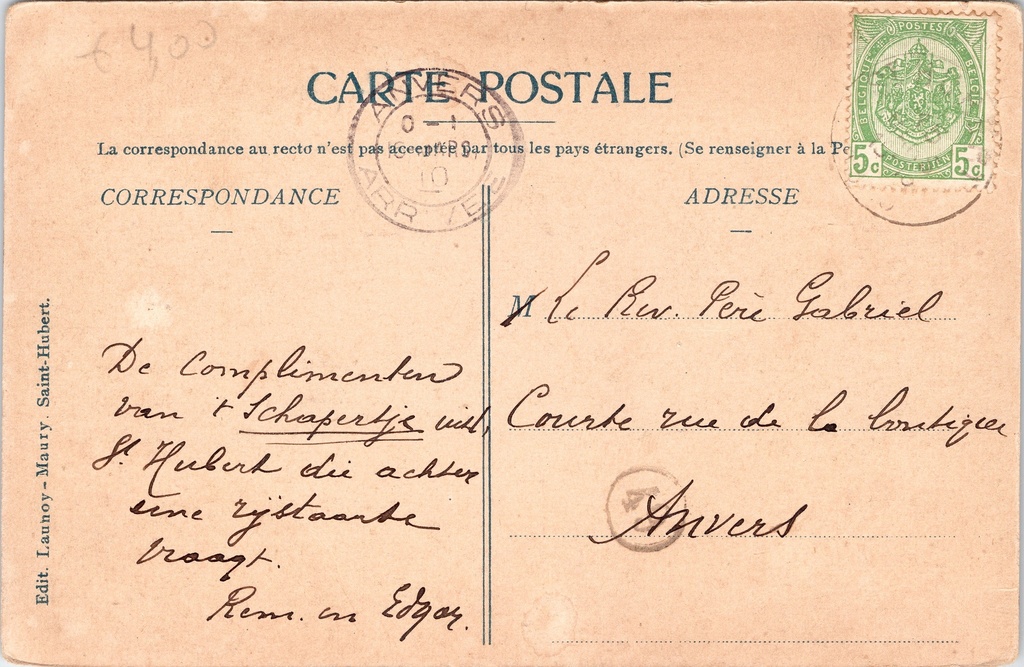 € 4,00
CARTE POSTALE
La correspondance au recto n'est pas acceptée par tous les pays étrangers. (Se renseigner à la
CORRESPONDANCE
De complimenten
van 't Schapertje uit
St Hubert die achter
eene rijstaarte
vraagt.
Rem. en Edgar.
ADRESSE
M Le Rev. Père Gabriel
Courte rue de la boutique
Anvers
POSTES
BELGIQUE
BELGIË
POSTERIJEN
5c 5c
ANVERS
0-1
MARS
ARR
Edit. Launoy-Maury. Saint-Hubert.